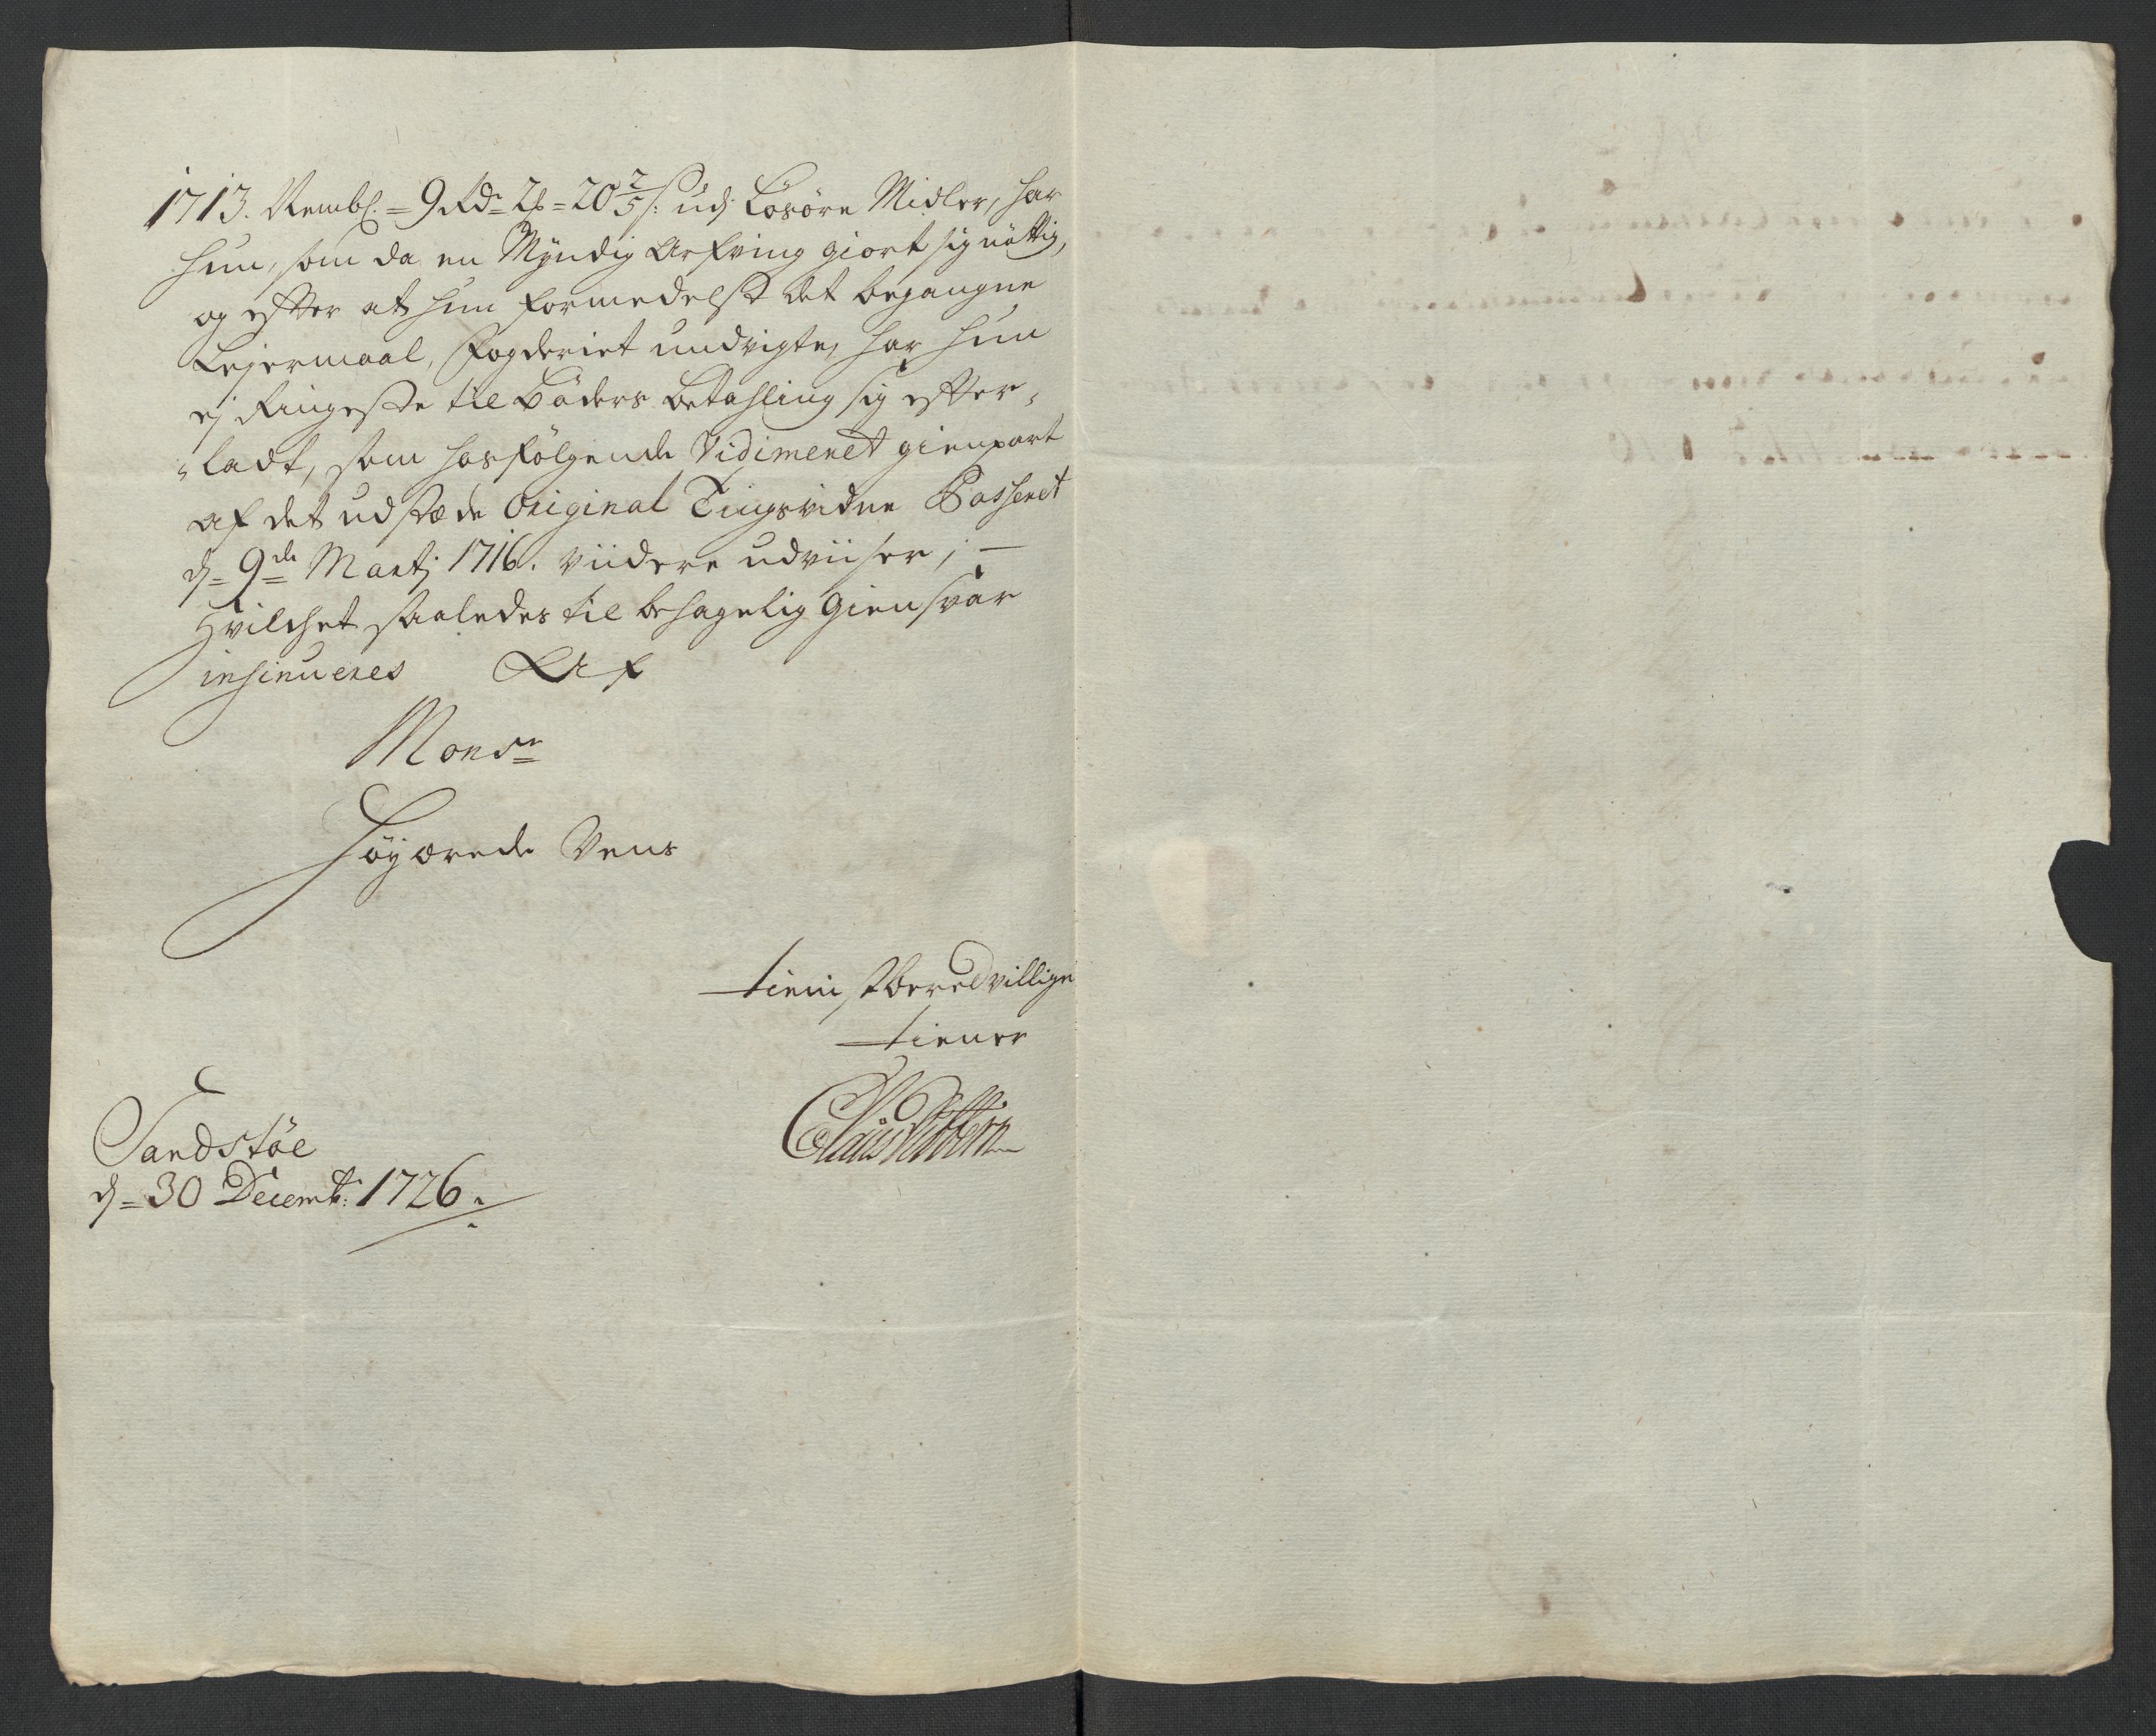 1713. Nembl. = 9 Rd= 2 = 20 2/5 s: udj Løsøre Midler, har
hun, som da en Myndig Arfving giort sig nøttig,
og efter at hun formedelst det begangne
Lejermaal, Fogderiet undvigte, har hun
ej Ringeste til Bøders betahling sig efter-
-ladt, som hosfølgende Vidimeret gienpart
af det udstæde Original Tingsvidne Passeret
d= 9de Martj 1716. viidere udviiser; —
Hvilchet saaledes til behagelig Giensvar
insinueres Af
Monsr
Høyærede Vens
tienistberedvillige
tiener
Sandstøe
d= 30 Decembr: 1726.